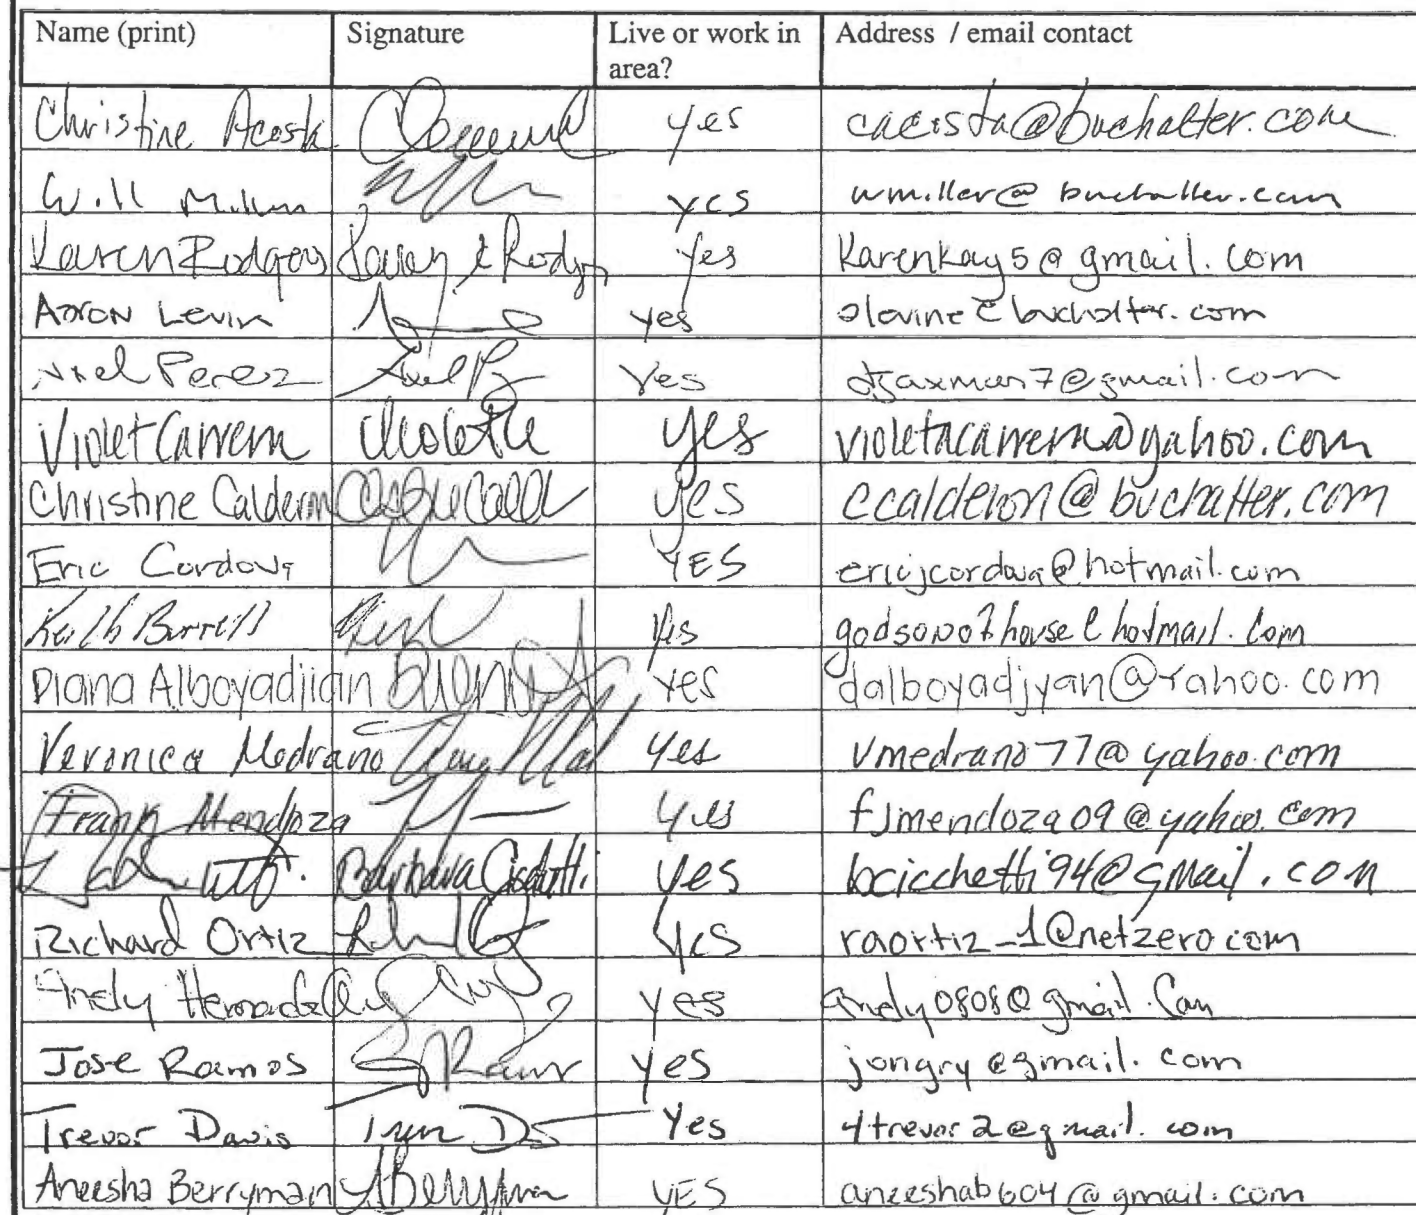 Name (print) Signature Live or work in area? Address / email contact
Christine Acosta yes cacosta@buchalter.com
Will Miller yes wmiller@buchalter.com
Karen Rodgers Karen Rodgers yes Karenkay5@gmail.com
Aaron Levin yes alevine@buchalter.com
Axel Perez Axel P yes djaxman7@gmail.com
Violet Carrera Violeta yes violetacarrera@yahoo.com
Christine Calderon yes ccalderon@buchalter.com
Eric Cordova YES ericjcordova@hotmail.com
Keith Burrell yes @hotmail.com
Diana Alboyadjian yes dalboyadjyan@Yahoo.com
Veronica Medrano yes vmedrano77@yahoo.com
Frank Mendoza yes fjmendoza09@yahoo.com
Barbara Cicchetti yes bcicchetti94@gmail.com
Richard Ortiz yes raortiz_1@netzero.com
Andy Hernandez yes andy0808@gmail.com
Jose Ramos yes jongry@gmail.com
Trevor Davis yes 4trevor2@gmail.com
Aneesha Berryman ABerryman YES aneeshab604@gmail.com